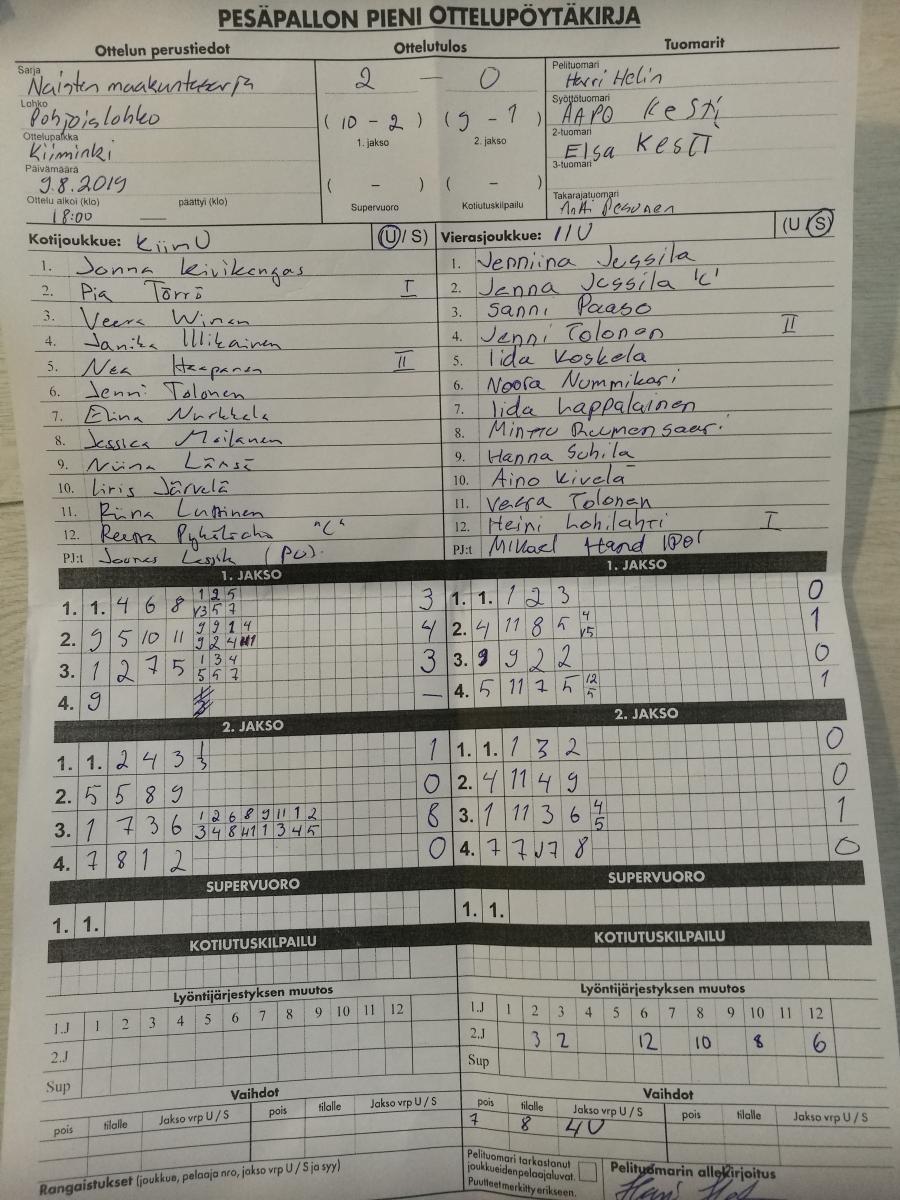 PESÄPALLON PIENI OTTELUPÖYTÄKIRJA
Ottelun perustiedot
Sarja
Naisten maakuntasarja
Lohko
Pohjoislohko
Ottelupaikka
Kiiminki
Päivämäärä
9.8.2019
Ottelu alkoi (klo) päättyi (klo)
18:00 —
Ottelutulos
2 — 0
(10 - 2) (9 - 1)
1. jakso 2. jakso
( - ) ( - )
Supervuoro Kotiutuskilpailu
Tuomarit
Pelituomari
Harri Helin
Syöttötuomari
AAPO KESTI
2-tuomari
Elsa KESTI
3-tuomari
Takarajatuomari
Antti Pesonen
Kotijoukkue: KiinU (U/S)
1. Jonna Kivikangas
2. Pia Törrö I
3. Veera Winen
4. Janika Illikainen
5. Nea Haapanen II
6. Jenni Tolonen
7. Elina Nurkkala
8. Jessica Moilanen
9. Niina Länsä
10. Iiris Järvelä
11. Riina Luttinen
12. Reetta "C"
PJ:t Joones (PV).
Vierasjoukkue: IIU (U/S)
1. Jenniina Jussila
2. Jenna Jussila "C"
3. Sanni Paaso
4. Jenni Tolonen II
5. Iida Koskela
6. Noora Nummikari
7. Iida Lappalainen
8. Minttu Reumensaari
9. Hanna Suhila
10. Aino Kivelä
11. Veera Tolonen
12. Heini Lohilahti I
PJ:t Mikael
1. JAKSO
1. 1. 4 6 8 1 2 5 3
V3 5 7
2. 9 5 10 11 9 9 1 4 4
9 2 4 11
3. 1 2 7 5 1 3 4 3
5 5 7
4. 9 —
1. JAKSO
1. 1. 1 2 3 0
2. 4 11 8 5 4 1
V5
3. 9 9 2 2 0
4. 5 11 7 5 12 1
5
2. JAKSO
1. 1. 2 4 3 1 1
3
2. 5 5 8 9 0
3. 1 7 3 6 1 2 6 8 9 11 1 2 8
3 4 8 11 1 3 4 5
4. 7 8 1 2 0
2. JAKSO
1. 1. 1 3 2 0
2. 4 11 4 9 0
3. 1 11 3 6 4 1
5
4. 7 7 V7 8 0
SUPERVUORO
1. 1.
SUPERVUORO
1. 1.
KOTIUTUSKILPAILU
KOTIUTUSKILPAILU
Lyöntijärjestyksen muutos
1.J 1 2 3 4 5 6 7 8 9 10 11 12
2.J
Sup
Lyöntijärjestyksen muutos
1.J 1 2 3 4 5 6 7 8 9 10 11 12
2.J 3 2 12 10 8 6
Sup
Vaihdot
pois tilalle Jakso vrp U / S pois tilalle Jakso vrp U / S
Vaihdot
pois tilalle Jakso vrp U / S pois tilalle Jakso vrp U / S
7 8 4U
Rangaistukset (joukkue, pelaaja nro, jakso vrp U / S ja syy)
Pelituomari tarkastanut
joukkueiden pelaajaluvat.
Puutteet merkitty erikseen.
Pelituomarin allekirjoitus